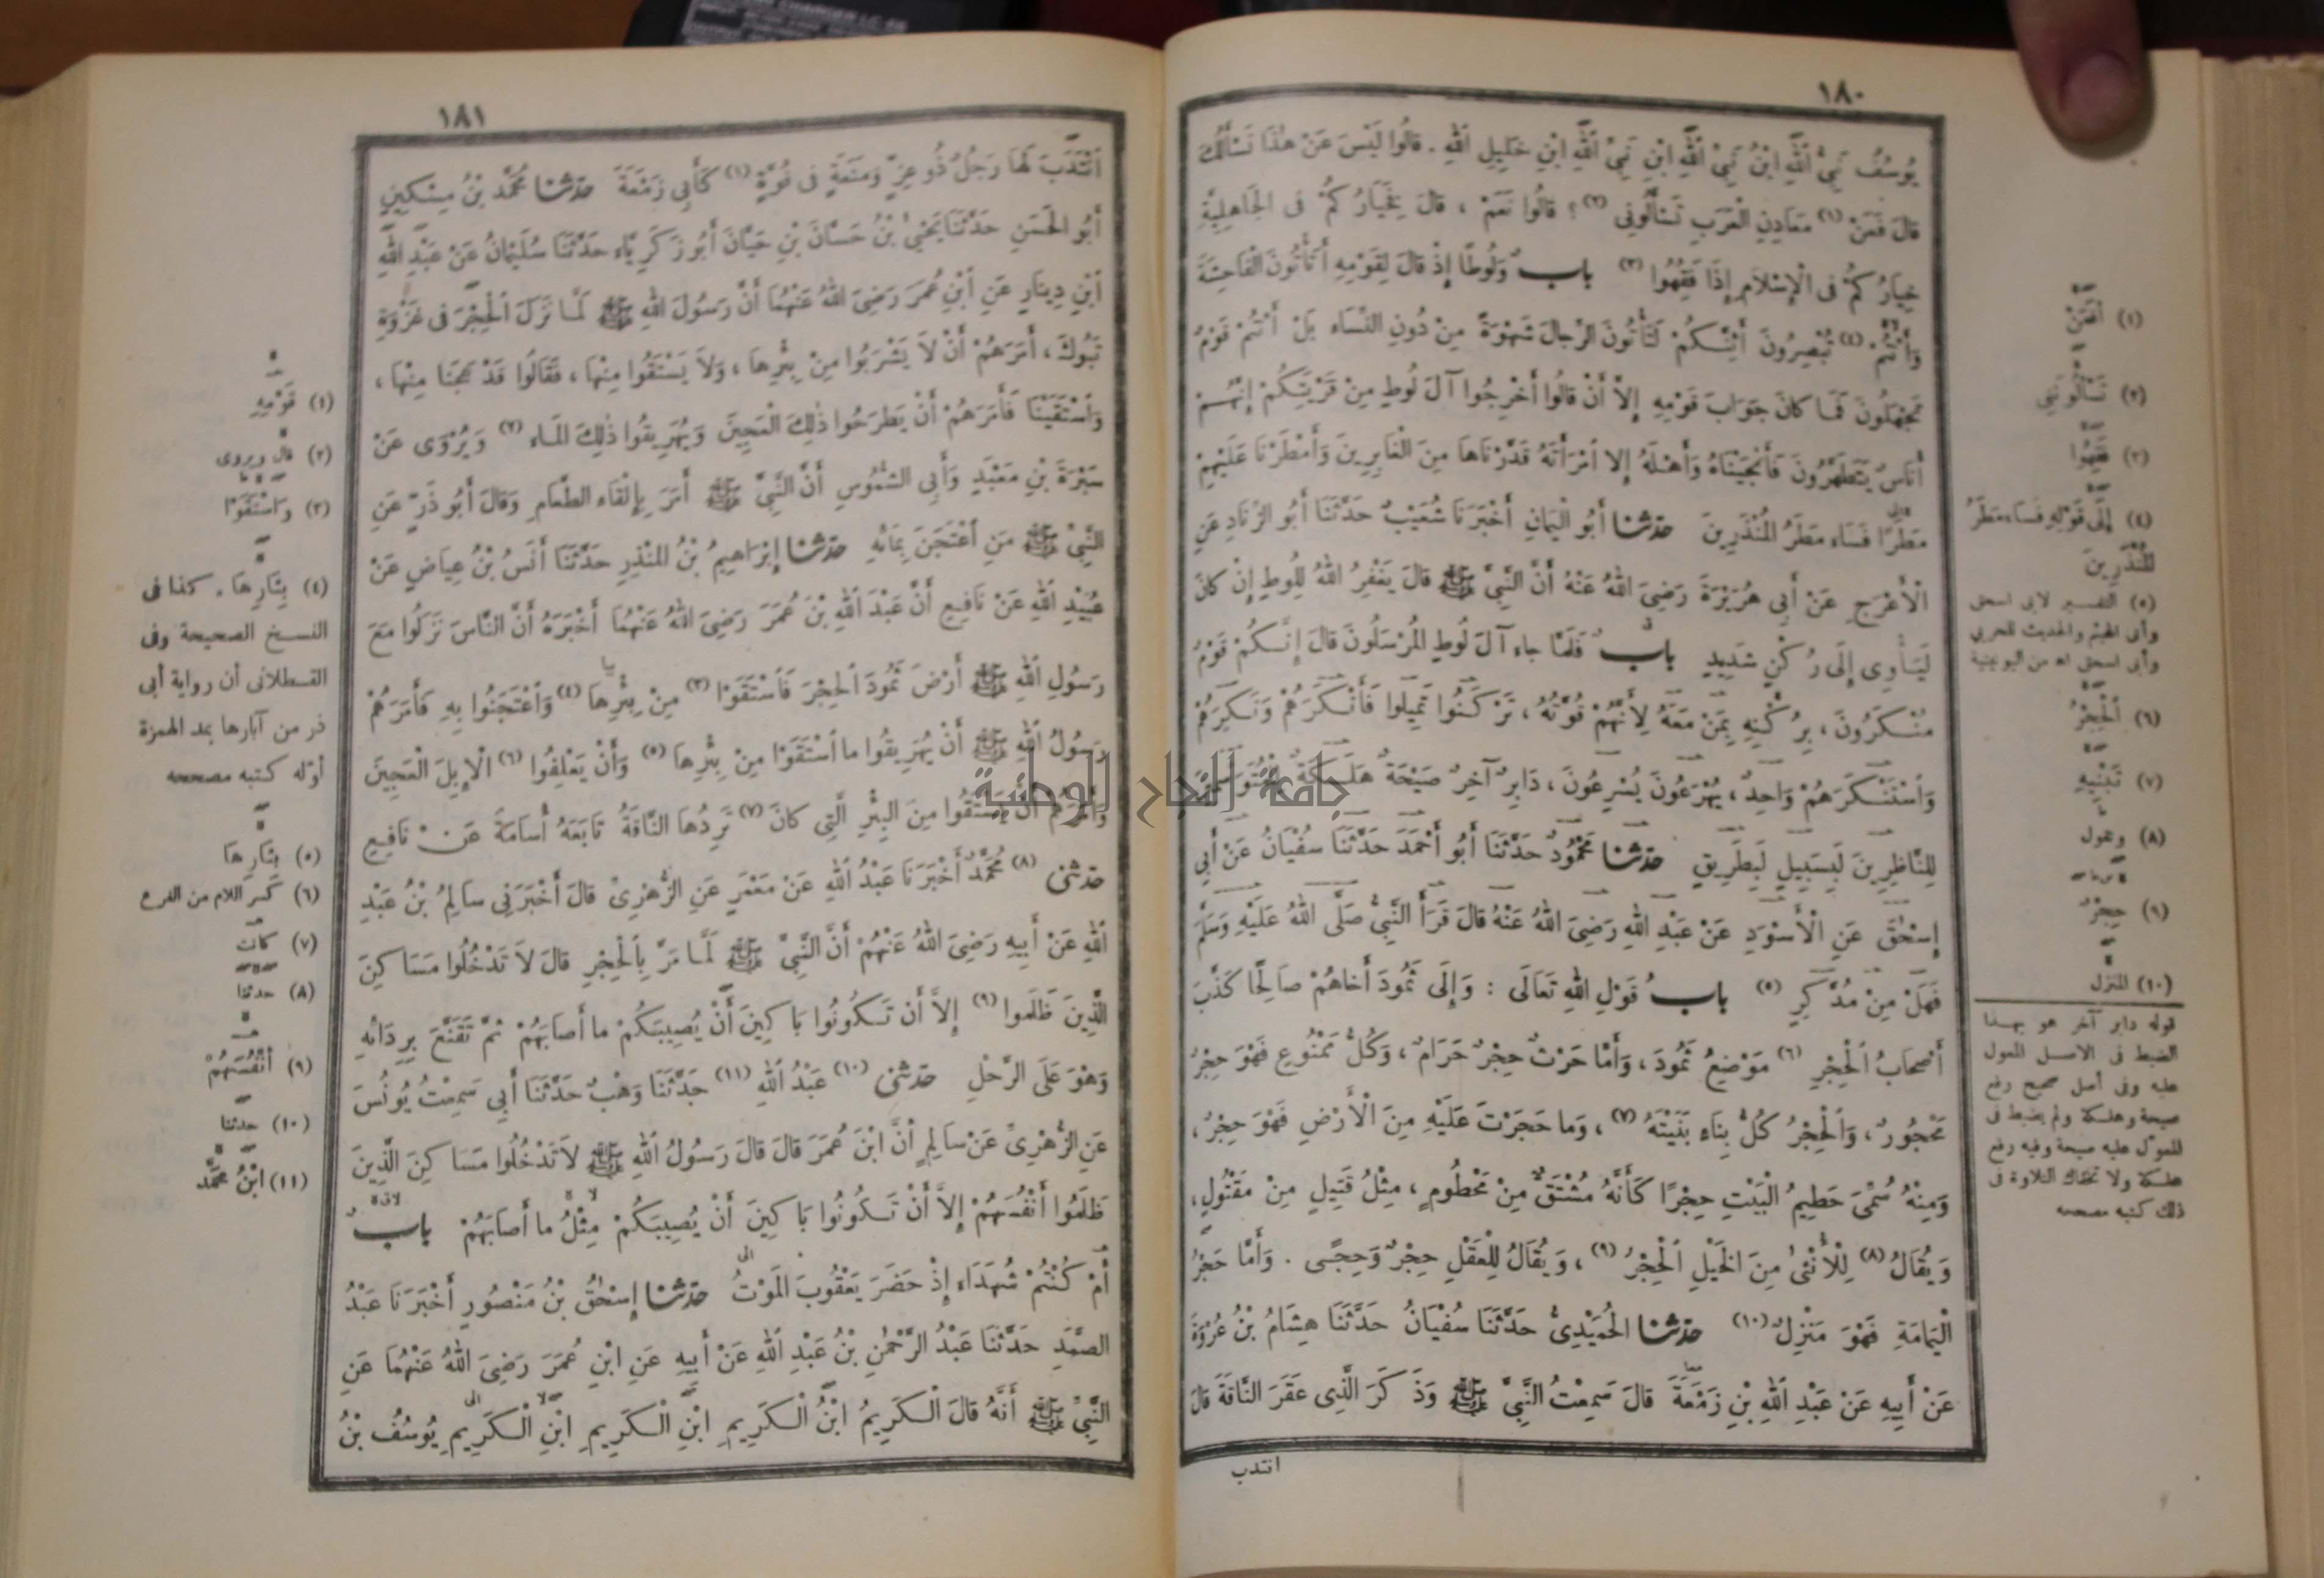 ١٨٠
يُوسُفُ نَبِيُّ اللهِ ابْنُ نَبِيِّ اللهِ ابْنِ نَبِيِّ اللهِ ابْنِ خَلِيلِ اللهِ . قالُوا لَيْسَ عَنْ هٰذَا نَسْأَلُكَ
قالَ فَعَنْ (١) مَعَادِنِ الْعَرَبِ تَسْأَلُونِي (٢) ؟ قالُوا نَعَمْ ، قالَ فَخِيَارُكُمْ فِى الجَاهِلِيَّةِ
خِيَارُكُمْ فِى الْإِسْلاَمِ إِذَا فَقِهُوا (٣) بابٌ وَلُوطًا إِذْ قالَ لِقَوْمِهِ أَتَأْتُونَ الْفَاحِشَةَ
وَأَنْتُمْ (٤) تُبْصِرُونَ أَئِنَّكُمْ لَتَأْتُونَ الرِّجالَ شَهْوَةً مِنْ دُونِ النِّسَاءِ بَلْ أَنْتُمْ قَوْمٌ
تَجْهَلُونَ فَمَا كانَ جَوَابَ قَوْمِهِ إِلاَّ أَنْ قالُوا أَخْرِجُوا آلَ لُوطٍ مِنْ قَرْيَتِكُمْ إِنَّهُمْ
أُنَاسٌ يَتَطَهَّرُونَ فَأَنْجَيْنَاهُ وَأَهْلَهُ إِلا امْرَأَتَهُ قَدَّرْنَاهَا مِنَ الْغَابِرِينَ وَأَمْطَرْنَا عَلَيْهِمْ
مَطَرًا فَسَاءَ مَطَرُ المُنْذَرِينَ حدّثنا أَبُو الْيَمَانِ أَخْبَرَنَا شُعَيْبٌ حَدَّثَنَا أَبُو الزِّنَادِ عَنِ
الْأَعْرَجِ عَنْ أَبِي هُرَيْرَةَ رَضِيَ اللهُ عَنْهُ أَنَّ النَّبِيَّ ﷺ قالَ يَغْفِرُ اللهُ لِلُوطٍ إِنْ كانَ
لَيَأْوِي إِلَى رُكْنٍ شَدِيدٍ بابٌ فَلَمَّا جاءَ آلَ لُوطٍ المُرْسَلُونَ قالَ إِنَّكُمْ قَوْمٌ
مُنْكَرُونَ ، بِرُكْنِهِ بِمَنْ مَعَهُ لِأَنَّهُمْ قُوَّتُهُ ، تَرْكَنُوا تَمِيلُوا فَأَنْكَرَهُمْ وَنَكِرَهُمْ
وَاسْتَنْكَرَهُمْ وَاحِدٌ ، يُهْرَعُونَ يُسْرِعُونَ ، دَابِرٌ آخِرٌ صَيْحَةٌ هَلَكَةٌ
لِلنَّاظِرِينَ لَبِسَبِيلٍ لَبِطَرِيقٍ حدّثنا مَحْمُودٌ حَدَّثَنَا أَبُو أَحْمَدَ حَدَّثَنَا سُفْيَانُ عَنْ أَبِي
إِسْحٰقَ عَنِ الْأَسْوَدِ عَنْ عَبْدِ اللهِ رَضِيَ اللهُ عَنْهُ قالَ قَرَأَ النَّبِيُّ صَلَّى اللهُ عَلَيْهِ وَسَلَّمَ
فَهَلْ مِنْ مُدَّكِرٍ (٥) بابُ قَوْلِ اللهِ تَعَالَى : وَإِلَى ثَمُودَ أَخاهُمْ صَالِحًا كَذَّبَ
أَصْحَابُ الْحِجْرِ (٦) مَوْضِعُ ثَمُودَ ، وَأَمَّا حَرْثٌ حِجْرٌ حَرَامٌ ، وَكُلُّ مَمْنُوعٍ فَهْوَ حِجْرٌ
مَحْجُورٌ ، وَالْحِجْرُ كُلُّ بِنَاءٍ بَنَيْتَهُ (٧) ، وَما حَجَرْتَ عَلَيْهِ مِنَ الْأَرْضِ فَهْوَ حِجْرٌ ،
وَمِنْهُ سُمِّيَ حَطِيمُ الْبَيْتِ حِجْرًا كَأَنَّهُ مُشْتَقٌّ مِنْ مَحْطُومٍ ، مِثْلُ قَتِيلٍ مِنْ مَقْتُولٍ ،
وَيُقَالُ (٨) لِلْأُنْثٰى مِنَ الخَيْلِ الْحِجْرُ (٩) ، وَيُقَالُ لِلْعَقْلِ حِجْرٌ وَحِجًى . وَأَمَّا حَجْرُ
الْيَمَامَةِ فَهْوَ مَنْزِلٌ (١٠) حدّثنا الحُمَيْدِيُّ حَدَّثَنَا سُفْيَانُ حَدَّثَنَا هِشَامُ بْنُ عُرْوَةَ
عَنْ أَبِيهِ عَنْ عَبْدِ اللهِ بْنِ زَمْعَةَ قالَ سَمِعْتُ النَّبِيَّ ﷺ وَذَكَرَ الَّذِى عَقَرَ النَّاقَةَ قالَ
انتدب
(١) أَفَعَنْ
(٢) تَسْأَلُونَنِي
(٣) فَقُهُوا
(٤) إِلَى قَوْلِهِ فَسَاءَ مَطَرُ
المُنْذَرِينَ
(٥) التفسير لابى اسحق
وأبى الهيثم والحديث للحربي
وأبى اسحق اه من اليونينية
(٦) الْحِجْرُ
(٧) تَبْنِيهِ
(٨) وتقول
(٩) حِجْرٌ
(١٠) المنزل
قوله دابر آخر هو بهذا
الضبط فى الاصل المعول
عليه وفى أصل صحيح رفع
صيحة وهلكة ولم يضبط فى
المعوّل عليه صيحة وفيه رفع
هلكة ولا تخفاك التلاوة فى
ذلك كتبه مصححه
١٨١
انْتَدَبَ لَهَا رَجُلٌ ذُو عِزٍّ وَمَنَعَةٍ فى قُوَّةٍ (١) كَأَبِي زَمْعَةَ حدّثنا مُحَمَّدُ بْنُ مِسْكِينٍ
أَبُو الحَسَنِ حَدَّثَنَا يَحْيٰى بْنُ حَسَّانَ بْنِ حَيَّانَ أَبُو زَكَرِيَّاءَ حَدَّثَنَا سُلَيْمَانُ عَنْ عَبْدِ اللهِ
ابْنِ دِينَارٍ عَنِ ابْنِ عُمَرَ رَضِيَ اللهُ عَنْهُمَا أَنَّ رَسُولَ اللهِ ﷺ لَمَّا نَزَلَ الْحِجْرَ فى غَزْوَةِ
تَبُوكَ ، أَمَرَهُمْ أَنْ لاَ يَشْرَبُوا مِنْ بِئْرِهَا ، وَلاَ يَسْتَقُوا مِنْهَا ، فَقَالُوا قَدْ عَجَنَّا مِنْهَا ،
وَاسْتَقَيْنَا فَأَمَرَهُمْ أَنْ يَطْرَحُوا ذٰلِكَ الْعَجِينَ وَيُهَرِيقُوا ذٰلِكَ المَاءَ (٢) وَيُرْوَى عَنْ
سَبْرَةَ بْنِ مَعْبَدٍ وَأَبِى الشُّمُوسِ أَنَّ النَّبِيَّ ﷺ أَمَرَ بِإِلْقَاءِ الطَّعَامِ وَقالَ أَبُو ذَرٍّ عَنِ
النَّبِيِّ ﷺ مَنِ اعْتَجَنَ بِمَائِهِ حدّثنا إِبْرَاهِيمُ بْنُ المُنْذِرِ حَدَّثَنَا أَنَسُ بْنُ عِيَاضٍ عَنْ
عُبَيْدِ اللهِ عَنْ نَافِعٍ أَنَّ عَبْدَ اللهِ بْنَ عُمَرَ رَضِيَ اللهُ عَنْهُمَا أَخْبَرَهُ أَنَّ النَّاسَ نَزَلُوا مَعَ
رَسُولِ اللهِ ﷺ أَرْضَ ثَمُودَ الْحِجْرَ فَاسْتَقَوْا (٣) مِنْ بِئْرِهَا (٤) وَاعْتَجَنُوا بِهِ فَأَمَرَهُمْ
رَسُولُ اللهِ ﷺ أَنْ يُهَرِيقُوا ما اسْتَقَوْا مِنْ بِئْرِهَا (٥) وَأَنْ يَعْلِفُوا (٦) الْإِبِلَ الْعَجِينَ
وَأَمَرَهُمْ أَنْ يَسْتَقُوا مِنَ الْبِئْرِ الَّتِى كانَ (٧) تَرِدُهَا النَّاقَةُ تَابَعَهُ أُسَامَةُ عَنْ نَافِعٍ
حدّثنى (٨) مُحَمَّدٌ أَخْبَرَنَا عَبْدُ اللهِ عَنْ مَعْمَرٍ عَنِ الزُّهْرِىِّ قالَ أَخْبَرَنِى سَالِمُ بْنُ عَبْدِ
اللهِ عَنْ أَبِيهِ رَضِيَ اللهُ عَنْهُمْ أَنَّ النَّبِيَّ ﷺ لَمَّا مَرَّ بِالْحِجْرِ قالَ لاَ تَدْخُلُوا مَسَاكِنَ
الَّذِينَ ظَلَمُوا (٩) إِلاَّ أَنْ تَكُونُوا بَاكِينَ أَنْ يُصِيبَكُمْ ما أَصَابَهُمْ ثُمَّ تَقَنَّعَ بِرِدَائِهِ
وَهْوَ عَلَى الرَّحْلِ حدّثنى (١٠) عَبْدُ اللهِ (١١) حَدَّثَنَا وَهْبٌ حَدَّثَنَا أَبِي سَمِعْتُ يُونُسَ
عَنِ الزُّهْرِىِّ عَنْ سَالِمٍ أَنَّ ابْنَ عُمَرَ قالَ قالَ رَسُولُ اللهِ ﷺ لاَ تَدْخُلُوا مَسَاكِنَ الَّذِينَ
ظَلَمُوا أَنْفُسَهُمْ إِلاَّ أَنْ تَكُونُوا بَاكِينَ أَنْ يُصِيبَكُمْ مِثْلُ ما أَصَابَهُمْ بابٌ
أَمْ كُنْتُمْ شُهَدَاءَ إِذْ حَضَرَ يَعْقُوبَ المَوْتُ حدّثنا إِسْحٰقُ بْنُ مَنْصُورٍ أَخْبَرَنَا عَبْدُ
الصَّمَدِ حَدَّثَنَا عَبْدُ الرَّحْمٰنِ بْنُ عَبْدِ اللهِ عَنْ أَبِيهِ عَنِ ابْنِ عُمَرَ رَضِيَ اللهُ عَنْهُمَا عَنِ
النَّبِيِّ ﷺ أَنَّهُ قالَ الْكَرِيمُ ابْنُ الْكَرِيمِ ابْنِ الْكَرِيمِ ابْنِ الْكَرِيمِ يُوسُفُ بْنُ
(١) قَوْمِهِ
(٢) قال ويروى
(٣) وَاسْتَقَوْا
(٤) بِئَارِهَا . كذا فى
النسخ الصحيحة وفى
القسطلانى أن رواية أبى
ذر من آبارها بمد الهمزة
أوله كتبه مصححه
(٥) بِئَارِهَا
(٦) كَسر اللام من الفرع
(٧) كانت
(٨) حدثنا
(٩) أَنْفُسَهُمْ
(١٠) حدثنا
(١١) ابْنُ مُحَمَّد
جامعة النجاح الوطنية